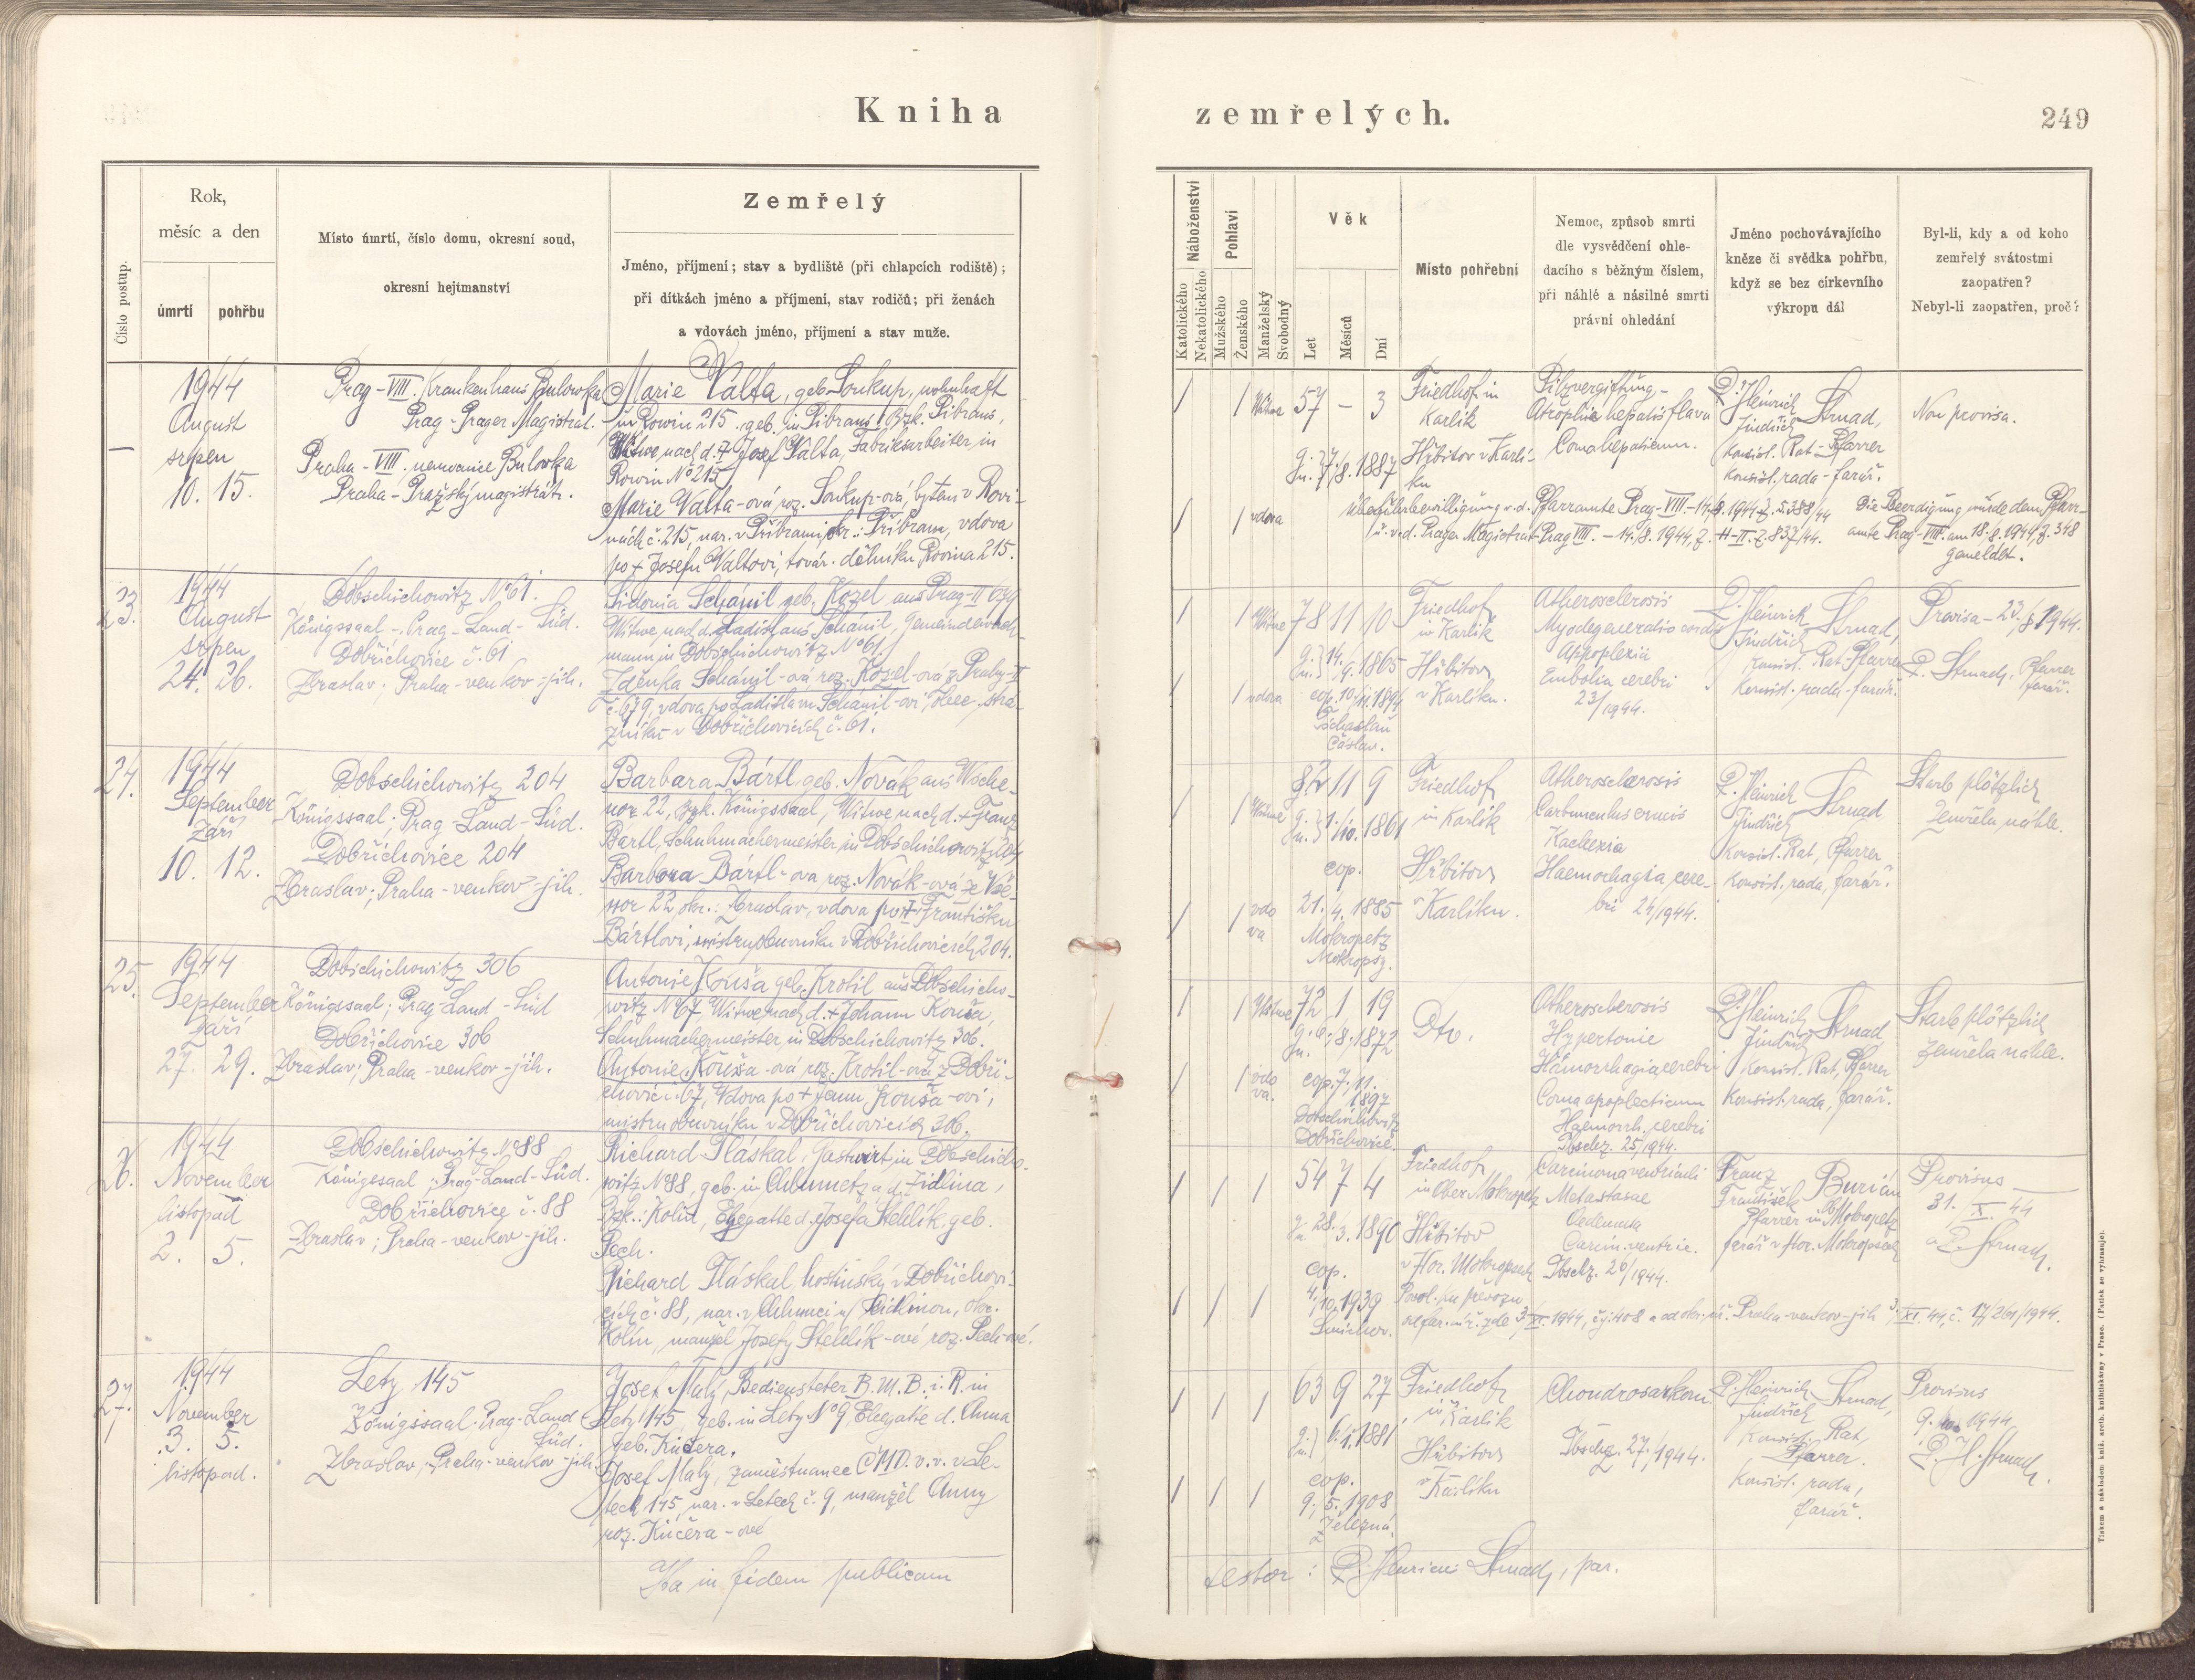 Kniha
zemřelých.
249
Číslo postup.
Rok,
měsíc a den
úmrtí
pohřbu
Místo úmrtí, číslo domu, okresní soud,
okresní hejtmanství
Zemřelý
Jméno, příjmení; stav a bydliště (při chlapcích rodiště);
při dítkách jméno a příjmení, stav rodičů; při ženách
a vdovách jméno, příjmení a stav muže.
Náboženství
Katolického
Nekatolického
Pohlaví
Mužského
Ženského
Manželský
Svobodný
Věk
Let
Měsíců
Dní
Místo pohřební
Nemoc, způsob smrti
dle vysvědčení ohle-
dacího s běžným číslem,
při náhlé a násilné smrti
právní ohledání
Jméno pochovávajícího
kněze či svědka pohřbu,
když se bez církevního
výkropu dál
Byl-li, kdy a od koho
zemřelý svátostmi
zaopatřen?
Nebyl-li zaopatřen, proč?
—
1944
August
srpen
10. 15.
Prag-VIII. Krankenhaus Bulowka
Prag-Prager Magistrat.
Praha-VIII. nemocnice Bulovka
Praha-Pražský magistrát.
Marie Valta, geb. Soukup, wohnhaft
in Rowin 215, geb. in Pibrans, Bzk. Pibrans,
Witwe nach d. + Josef Valta, Fabriksarbeiter in
Rowin No 215
Marie Valta-ová roz. Soukup-ová, bytem v Rovi-
nách č. 215, nar. v Příbrami, okr.: Příbram, vdova
po + Josefu Valtovi, továr. dělníku Rovina 215.
/ / Witwe 57 – 3
g. n. 7./8. 1887
/ / vdova
Friedhof in
Karlik
Hřbitov v Karlí-
ku
Pilzvergiftung-
Atrophia hepatis flava
Coma hepaticum.
P. Heinrich
Jindřich Strnad,
Konsist. Rat-Pfarrer
Konsist. rada-farář.
Non provisa.
Überführbewilligung v. d. Pfarramte Prag-VIII.-14./8. 1944 Z. 5.388/44
u. v. d. Prager Magistrat-Prag VIII. – 14./8. 1944, Z. H-II-Z. 837/44.
Die Beerdigung wurde dem Pfarr-
amte Prag-VIII. am 18. 8. 1944, Z. 348
gemeldet.
23.
1944
August
srpen
24. 26.
Dobschichowitz No 61.
Königssaal - Prag-Land-Süd.
Dobřichovice č. 61
Zbraslav; Praha-venkov-jih.
Sidonia Schánil geb. Kozel aus Prag-II 679
Witwe nach d. Ladislaus Schánil, Gemeindewach-
mann in Dobschichowitz No 61.
Zdeňka Schánil-ová, roz. Kozel-ová z Prahy-II
č. 679, vdova po Ladislavu Schánil-ovi, obec. strá-
žníku v Dobřichovicích č. 61.
/ / Witwe 78 11 10
g. n. 14./9. 1865
/ / vdova
cop. 10./11. 1894
Tschaslau
Čáslav.
Friedhof
in Karlik
Hřbitov
v Karlíku.
Atherosclerosis
Myodegeneratio cordis
Apoplexia
Embolia cerebri
23/1944.
P. Heinrich
Jindřich Strnad,
Konsist. Rat-Pfarrer
Konsist. rada-farář.
Provisa-23./8. 1944.
P. Strnad, Pfarrer
farář.
24.
1944
September
Září
10. 12.
Dobschichowitz 204
Königssaal; Prag-Land-Süd.
Dobřichovice 204
Zbraslav; Praha-venkov-jih.
Barbara Bártl geb. Novák aus Wsche-
nor 22, Bzk. Königssaal, Witwe nach d. + Franz
Bartl, Schuhmachermeister in Dobschichowitz 204
Barbora Bártl-ova roz. Novák-ová ze Vše-
nor 22 okr.: Zbraslav, vdova po + Františku
Bártlovi, mistru obuvníku v Dobřichovicích 204.
/ / Witwe 82 11 9
g. n. 1./10. 1861
cop.
/ / vdo
va
21./4. 1885
Mokropetz
Mokropsy.
Friedhof
in Karlik
Hřbitov
v Karlíku.
Atherosclerosis
Carbunculus cruris
Kachexia
Haemorhagia cere-
bri 24/1944.
P. Heinrich
Jindřich Strnad
Konsist. Rat, Pfarrer
Konsist. rada, farář.
Starb plötzlich
Zemřela náhle.
25.
1944
September
Září
27. 29.
Dobschichowitz 306
Königssaal; Prag-Land-Süd
Dobřichovice 306
Zbraslav; Praha-venkov-jih.
Antonie Kouša geb. Krotil aus Dobschicho-
witz No 67, Witwe nach d. + Johann Kouša,
Schuhmachermeister, in Dobschichowitz 306.
Antonie Kouša-ová roz. Krotil-ová z Dobři-
chovic č. 67, vdova po + Janu Kouša-ovi,
mistru obuvníku v Dobřichovicích 306.
/ / Witwe 72 1 19
g. n. 6./8. 1872
/ / vdo
va.
cop. 7. 11.
1897
Dobschichowitz
Dobřichovice.
Dto.
Atherosclerosis
Hypertonie
Hämorrhagia cerebri
Coma apoplecticum
Haemorrh. cerebri
Tbschz. 25/1944.
P. Heinrich
Jindřich Strnad
Konsist. Rat, Pfarrer
Konsist. rada, farář.
Starb plötzlich
Zemřela náhle.
26.
1944
November
listopad
2. 5.
Dobschichowitz No 88
Königssaal; Prag-Land-Süd.
Dobřichovice č. 88
Zbraslav; Praha-venkov-jih.
Richard Tláskal, Gastwirt in Dobschicho-
witz No 88, geb. in Chlumetz a. d. Zidlina,
Bzk.: Kolin, Ehegatte d. Josefa Stehlík geb.
Pech.
Richard Tláskal, hostinský v Dobřichovi-
cích č. 88, nar. v Chlumci n/ Cidlinou, okr.
Kolín, manžel Josefy Stehlík-ové roz. Pech-ové.
/ / / 54 7 4
g. n. 28./3. 1890
cop.
/ / / 4./10. 1939
Smíchov.
Friedhof
in Ober Mokropetz
Hřbitov
v Hor. Mokropsech
Carcinoma ventriculi
Metastasae
Oedemata
Carcin. ventric.
Tbschz. 26/1944.
Franz
František Burián
Pfarrer in Ob. Mokropetz
farář v Hor. Mokropsech
Provisus
31./X. 44
P. Strnad.
Povol. ku převozu
od far. úř. zde 3./XI. 1944, čj. 408 a od okr. úř. Praha-venkov-jih 3./XI. 44, č. 17/261/1944.
27.
1944
November
3. 5.
listopad.
Lety 145
Königssaal; Prag-Land-
Süd.
Zbraslav; Praha-venkov-jih.
Josef Malý, Bediensteter B. M. B. i. R. in
Lety 145, geb. in Lety No 9, Ehegatte d. Anna
geb. Kučera.
Josef Malý, zaměstnanec ČMD. v. v. v Le-
tech 145, nar. v Letech č. 9, manžel Anny
roz. Kučera-ové
/ / / 63 9 27
g. n. 6./1. 1881
cop.
/ / / 9./5. 1908
Železná.
Friedhof
in Karlik
Hřbitov
v Karlíku
Chondrosarkom
Tbschz. 27/1944.
P. Heinrich
Jindřich Strnad,
Konsist. Rat,
Pfarrer.
Konsist. rada,
farář.
Provisus
1944
P. H. Strnad.
Ita in fidem publicam
testor: P. Henricus Strnad, par.
Tiskem a nákladem kníž. arcib. knihtiskárny v Praze. (Patisk se vyhrazuje).